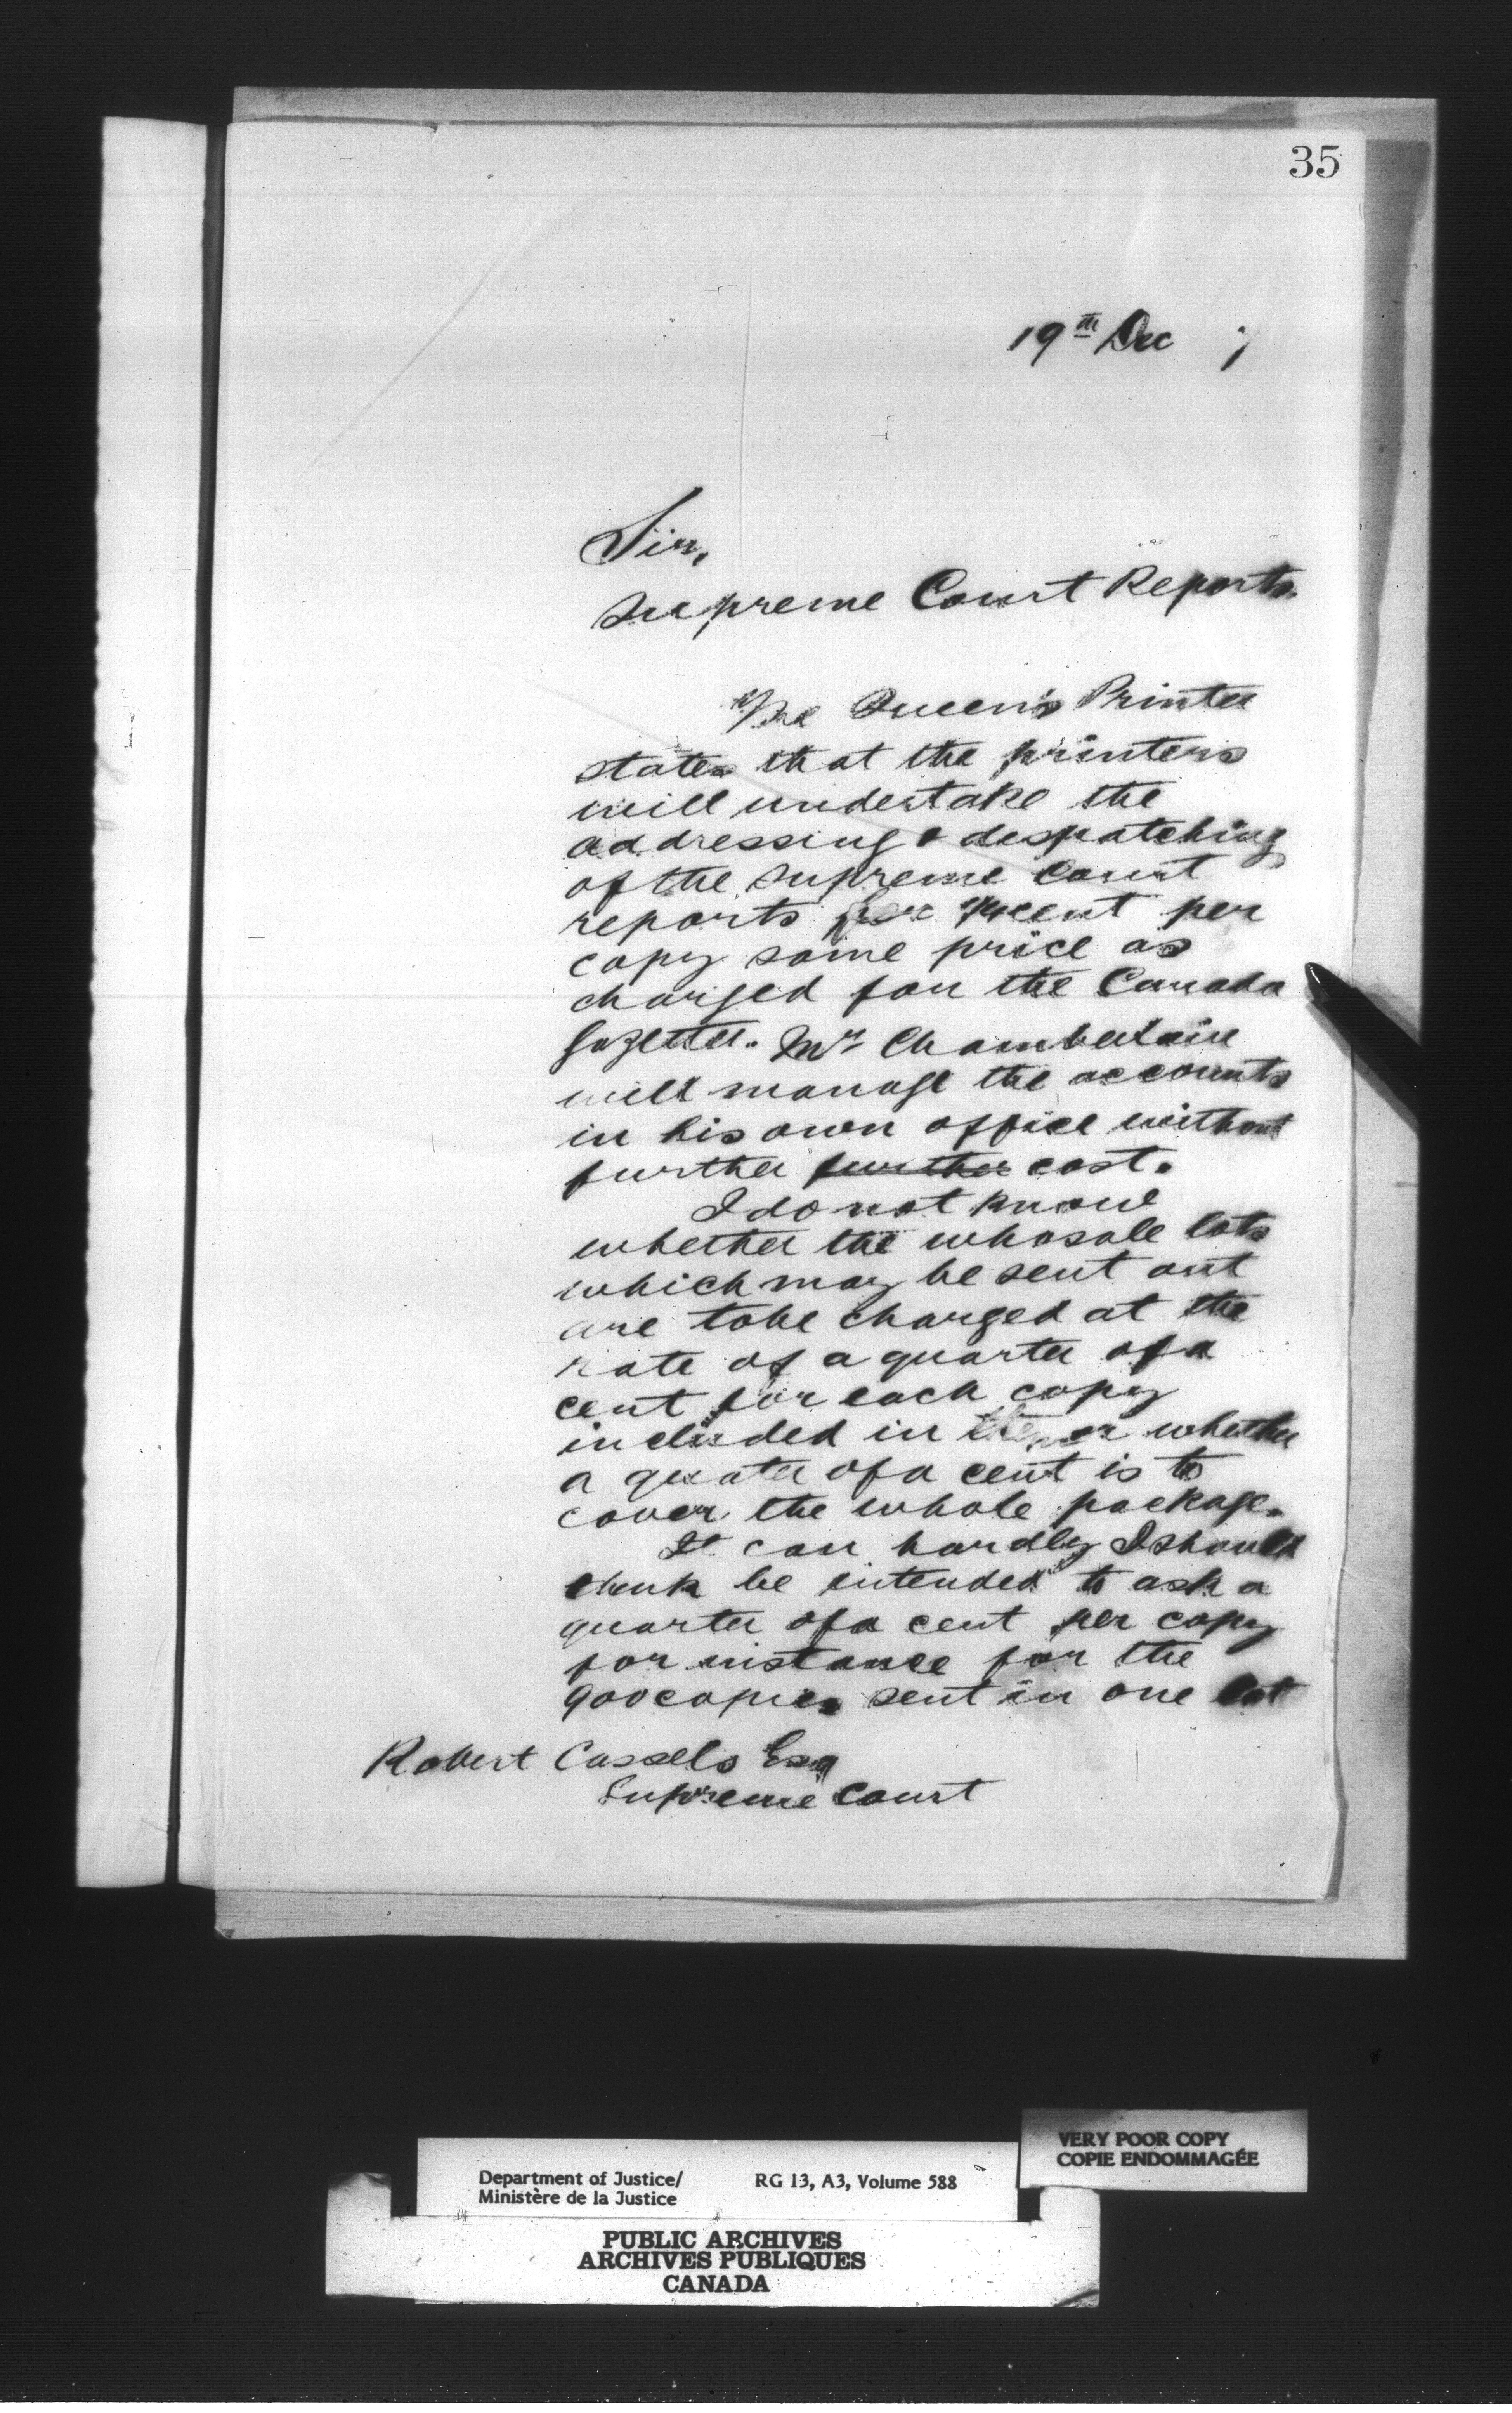 35
19th Dec 7
Sir,
Supreme Court Reports.
The Queen's Printer
states that the printers
will undertake the
addressing & despatching
of the Supreme Court
reports for 1/4 cent per
copy same price as
charged for the Canada
Gazette. Mr Chamberlain
will manage the accounts
in his own office without
further further cost.
I do not know
whether the whosale lots
which may be sent out
are to be charged at the
rate of a quarter of a
cent for each copy
included in them or whether
a quater of a cent is to
cover the whole package.
It can hardly I should
think be intended to ask a
quarter of a cent per copy
for instance for the
900 copies sent in one lot
Robert Cassels Esq
Supreme Court
VERY POOR COPY
COPIE ENDOMMAGÉE
Department of Justice/ RG 13, A3, Volume 588
Ministère de la Justice
PUBLIC ARCHIVES
ARCHIVES PUBLIQUES
CANADA